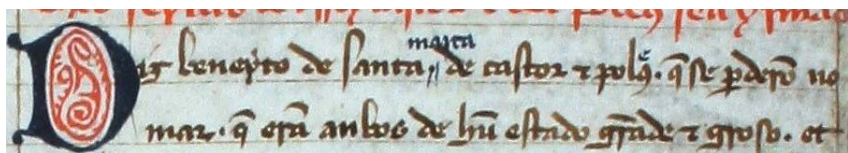 Diz beneyto de santa marta de castor ⁊ polꝯ. q̃ se ꝑderõ no
mar. q̃ erã anbos de hũ estado grãde ⁊ groso. et